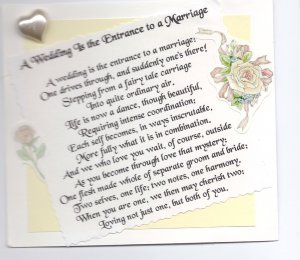 A Wedding Is the Entrance to a Marriage
A wedding is the entrance to a marriage:
One drives through, and suddenly one's there!
Stepping from a fairy tale carriage
Into quite ordinary air.
Life is now a dance, though beautiful,
Requiring intense coordination;
Each self becomes, in ways inscrutable,
More fully what it is in combination.
And we who love you wait, of course, outside
As you become through love that mystery:
One flesh made whole of separate groom and bride;
Two selves, one life; two notes, one harmony.
When you are one, we then may cherish two:
Loving not just one, but both of you.